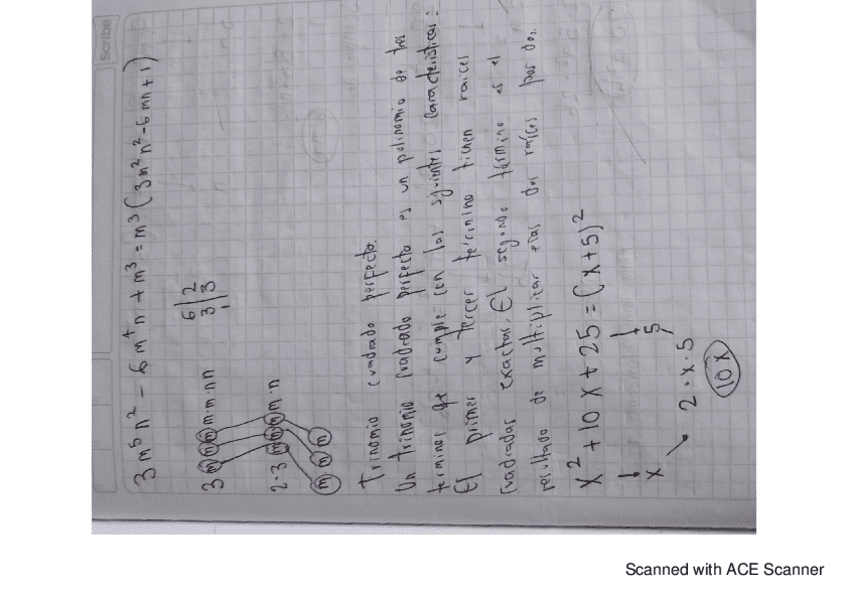 Scribe
3m⁵n² - 6m⁴n + m³ = m³(3m²n² - 6mn + 1)
3 m m m m·m·nn
6 | 2
3 | 3
1
2·3 m m m m·n
m m m
Trinomio cuadrado perfecto.
Un trinomio cuadrado perfecto es un polinomio de tres
terminos que cumple con las siguientes caracteristicas:
El primer y tercer término tienen raices
cuadradas exactas. El segundo termino es el
resultado de multiplicar esas dos raíces por dos.
x² + 10x + 25 = (x+5)²
x 5
2·x·5
10x
Scanned with ACE Scanner